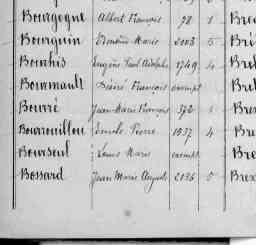 Bourgogne Albert François 78 1 Bre
Bourguin Edouard Marie 2003 5 Bré
Bourhis Eugène Paul Adolphe 1749 4 Bre
Bourmault Désiré François exempt Bre
Bourré Jean Marie François 372 1 Bre
Bourrouillou Emile Pierre 1537 4 Bre
Bourseul Louis Marie exempt Bre
Bossard Jean Marie August 2136 5 Bre